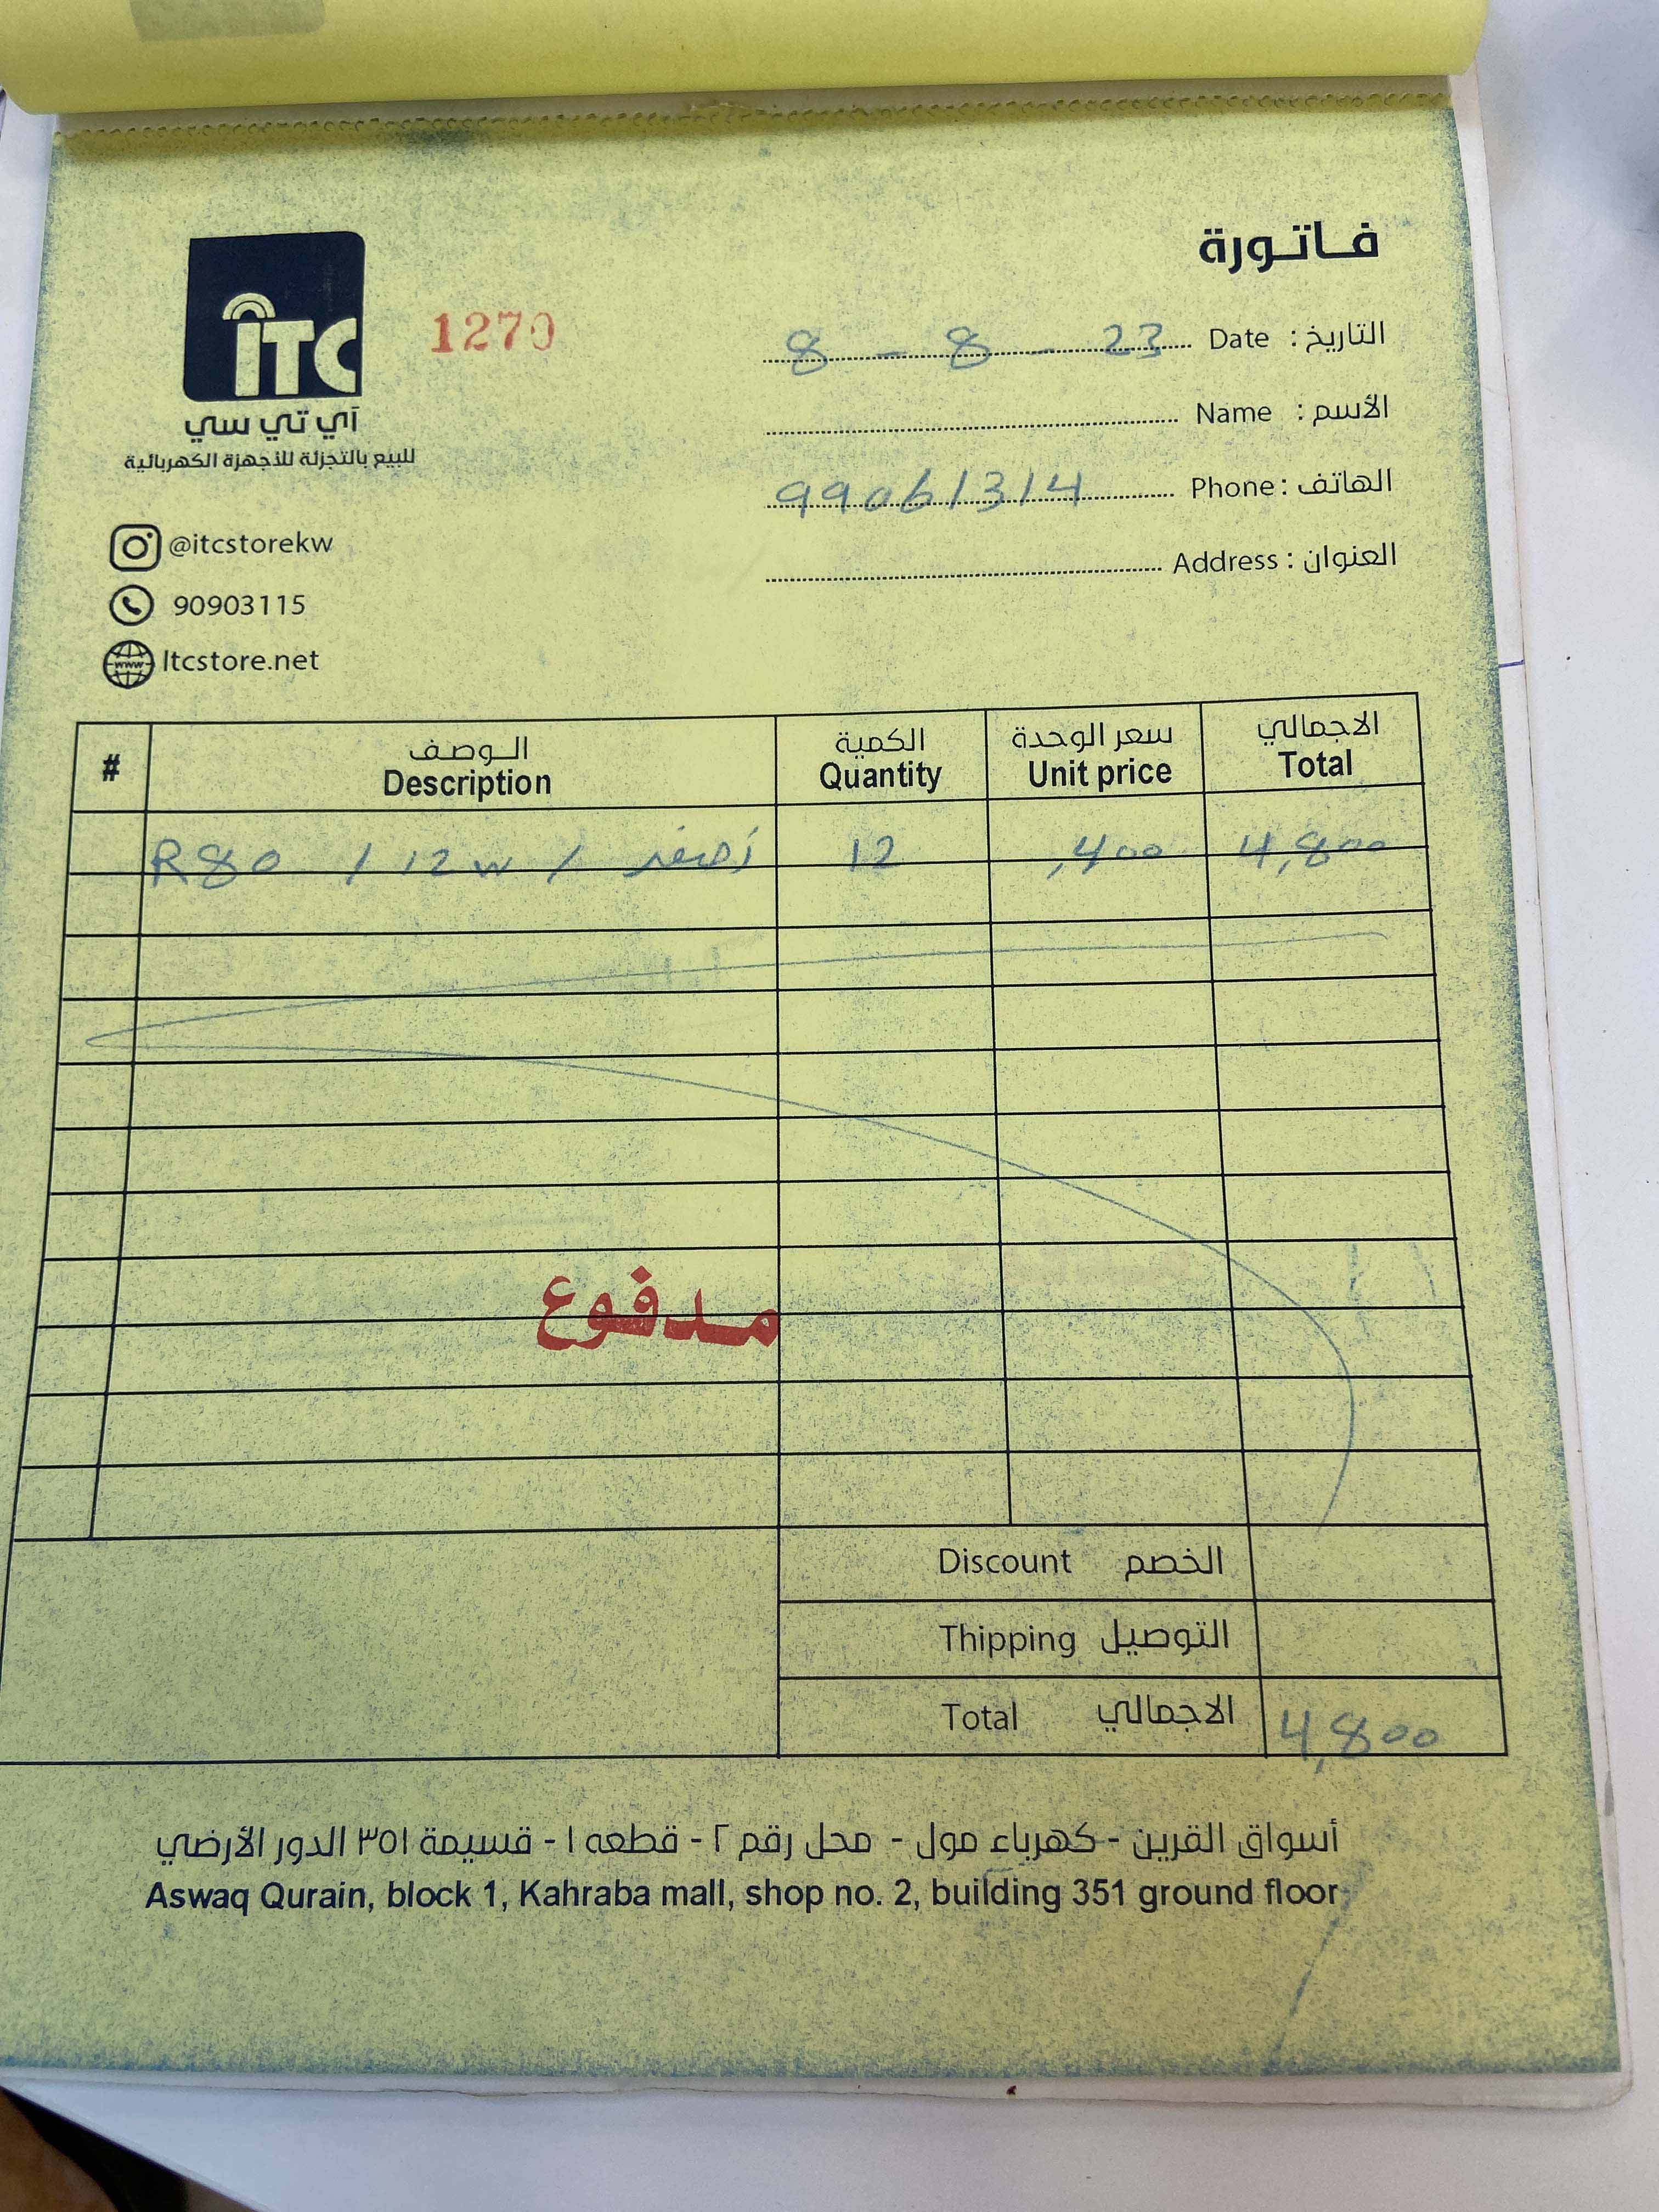 فاتورة
ITC
آي تي سي
للبيع بالتجزئة للأجهزة الكهربائية
1270
التاريخ : Date 8 - 8 - 23
الأسم : Name
الهاتف : Phone 99061314
العنوان : Address
@itcstorekw
90903115
www
Itcstore.net
# الوصف الكمية سعر الوحدة الاجمالي
Description Quantity Unit price Total
R80 / 12w / أصفر 12 ,400 4,800
مدفوع
Discount الخصم
Thipping التوصيل
Total الاجمالي 4,800
أسواق القرين - كهرباء مول - محل رقم ٢ - قطعه ١ - قسيمة ٣٥١ الدور الأرضي
Aswaq Qurain, block 1, Kahraba mall, shop no. 2, building 351 ground floor